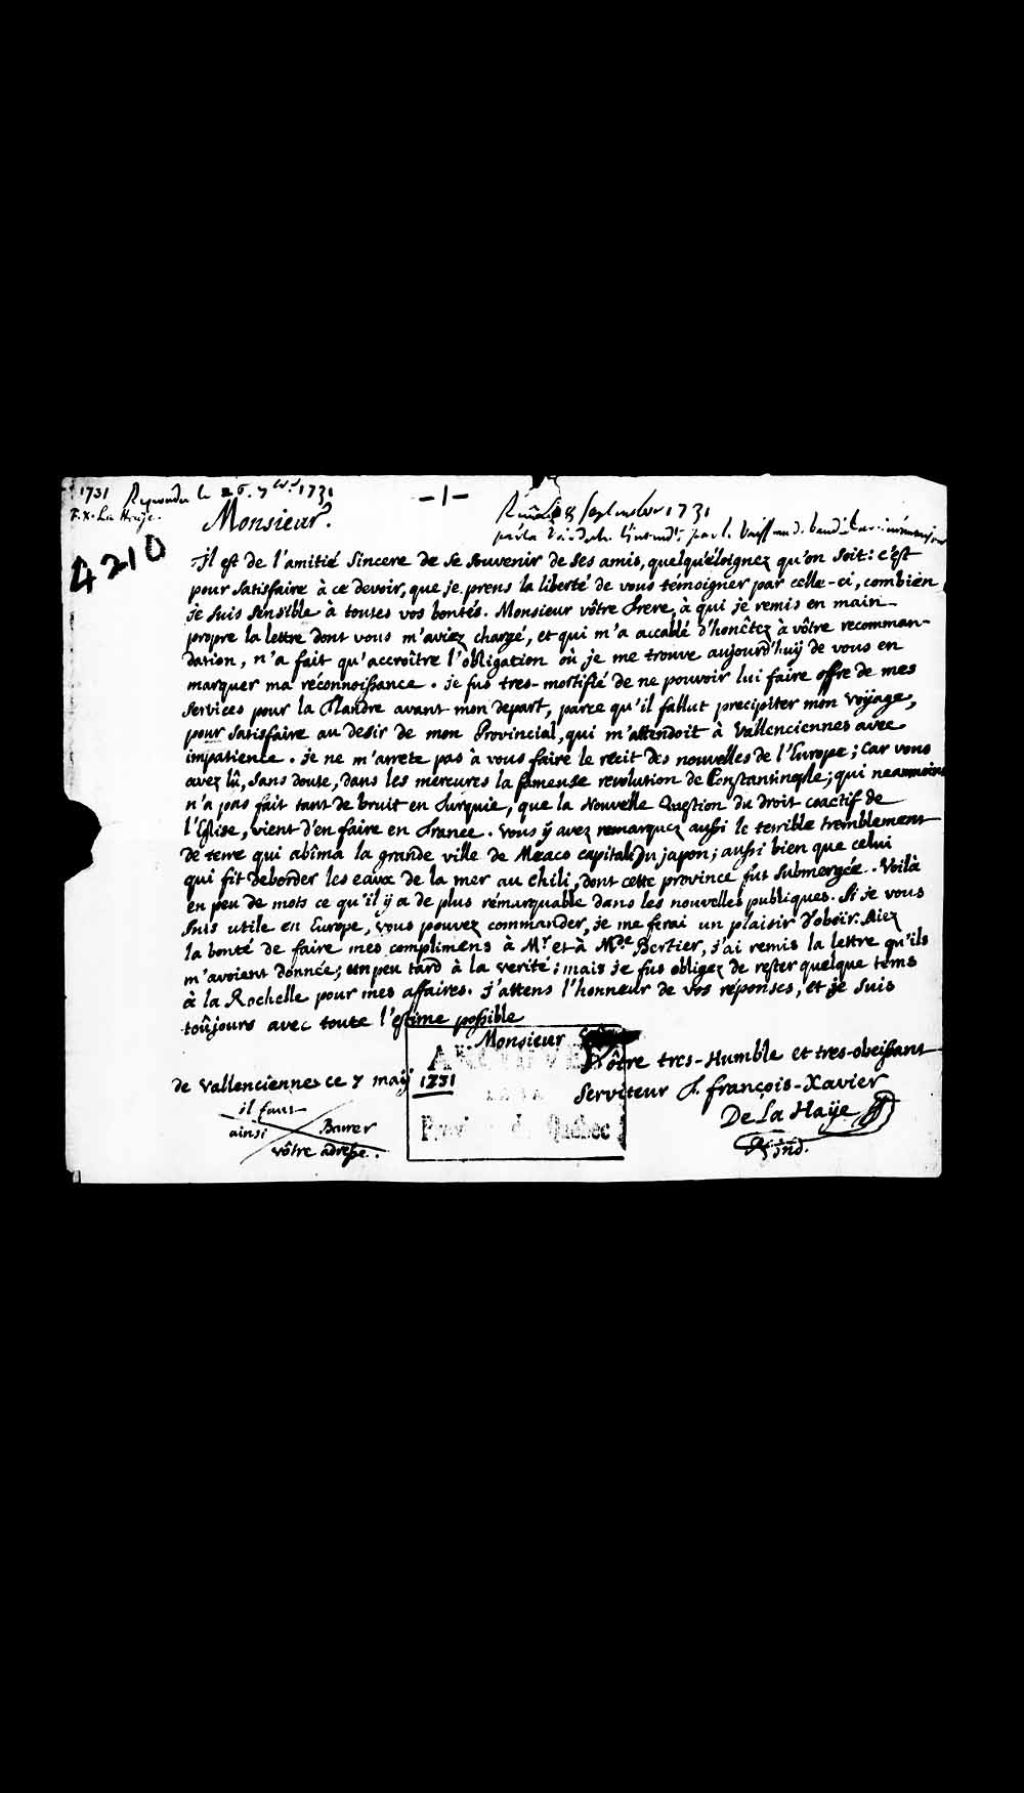 1731 Repondu le 26. 7bre. 1731
F. X. La Haye.
- 1 -
8 septembre 1731
par le
4210
Monsieur.
Il est de l'amitié sincere de se souvenir de ses amis, quelqu'éloignez qu'on soit: c'est
pour satisfaire à ce devoir, que je prens la liberté de vous témoigner par celle-ci, combien
je suis sensible à toutes vos bontés. Monsieur vôtre frere, à qui je remis en main-
propre la lettre dont vous m'aviez chargé, et qui m'a accablé d'honêtez à vôtre recomman-
dation, n'a fait qu'accroître l'obligation où je me trouve aujourd'huÿ de vous en
marquer ma réconnoissance. je fus tres-mortifié de ne pouvoir lui faire offre de mes
services pour la flandre avant mon depart, parce qu'il fallut precipiter mon voÿage,
pour satisfaire au desir de mon Provincial, qui m'attendoit à Vallenciennes avec
impatience. je ne m'arrete pas à vous faire le récit des nouvelles de l'Europe; car vous
avez lû, sans doute, dans les mercures la fameuse revolution de Constantinople; qui neanmoins
n'a pas fait tant de bruit en Turquie, que la nouvelle Question du droit coactif de
l'Eglise, vient d'en faire en france. vous ÿ avez remarquez aussi le terrible tremblement
de terre qui abîma la grande ville de Meaco capitale du japon; aussi bien que celui
qui fit deborder les eaux de la mer au chili, dont cette province fut submergée. Voilà
en peu de mots ce qu'il ÿ a de plus rémarquable dans les nouvelles publiques. Si je vous
suis utile en Europe, vous pouvez commander, je me ferai un plaisir d'obeïr: Aiez
la bonté de faire mes complimens à Mr. et à Mde. Bertier, j'ai remis la lettre qu'ils
m'avoient donnée; un peu tard à la verité; mais je fus obligez de rester quelque tems
à la Rochelle pour mes affaires. j'attens l'honneur de vos réponses, et je suis
toûjours avec toute l'estime possible
Monsieur
Vôtre tres-Humble et tres-obeissant
de Vallenciennes ce 7 maÿ 1731
serviteur f. françois-Xavier
De La Haÿe
il faut
ainsi
vôtre adresse.
ARCHIVES
DE LA
Province de Québec